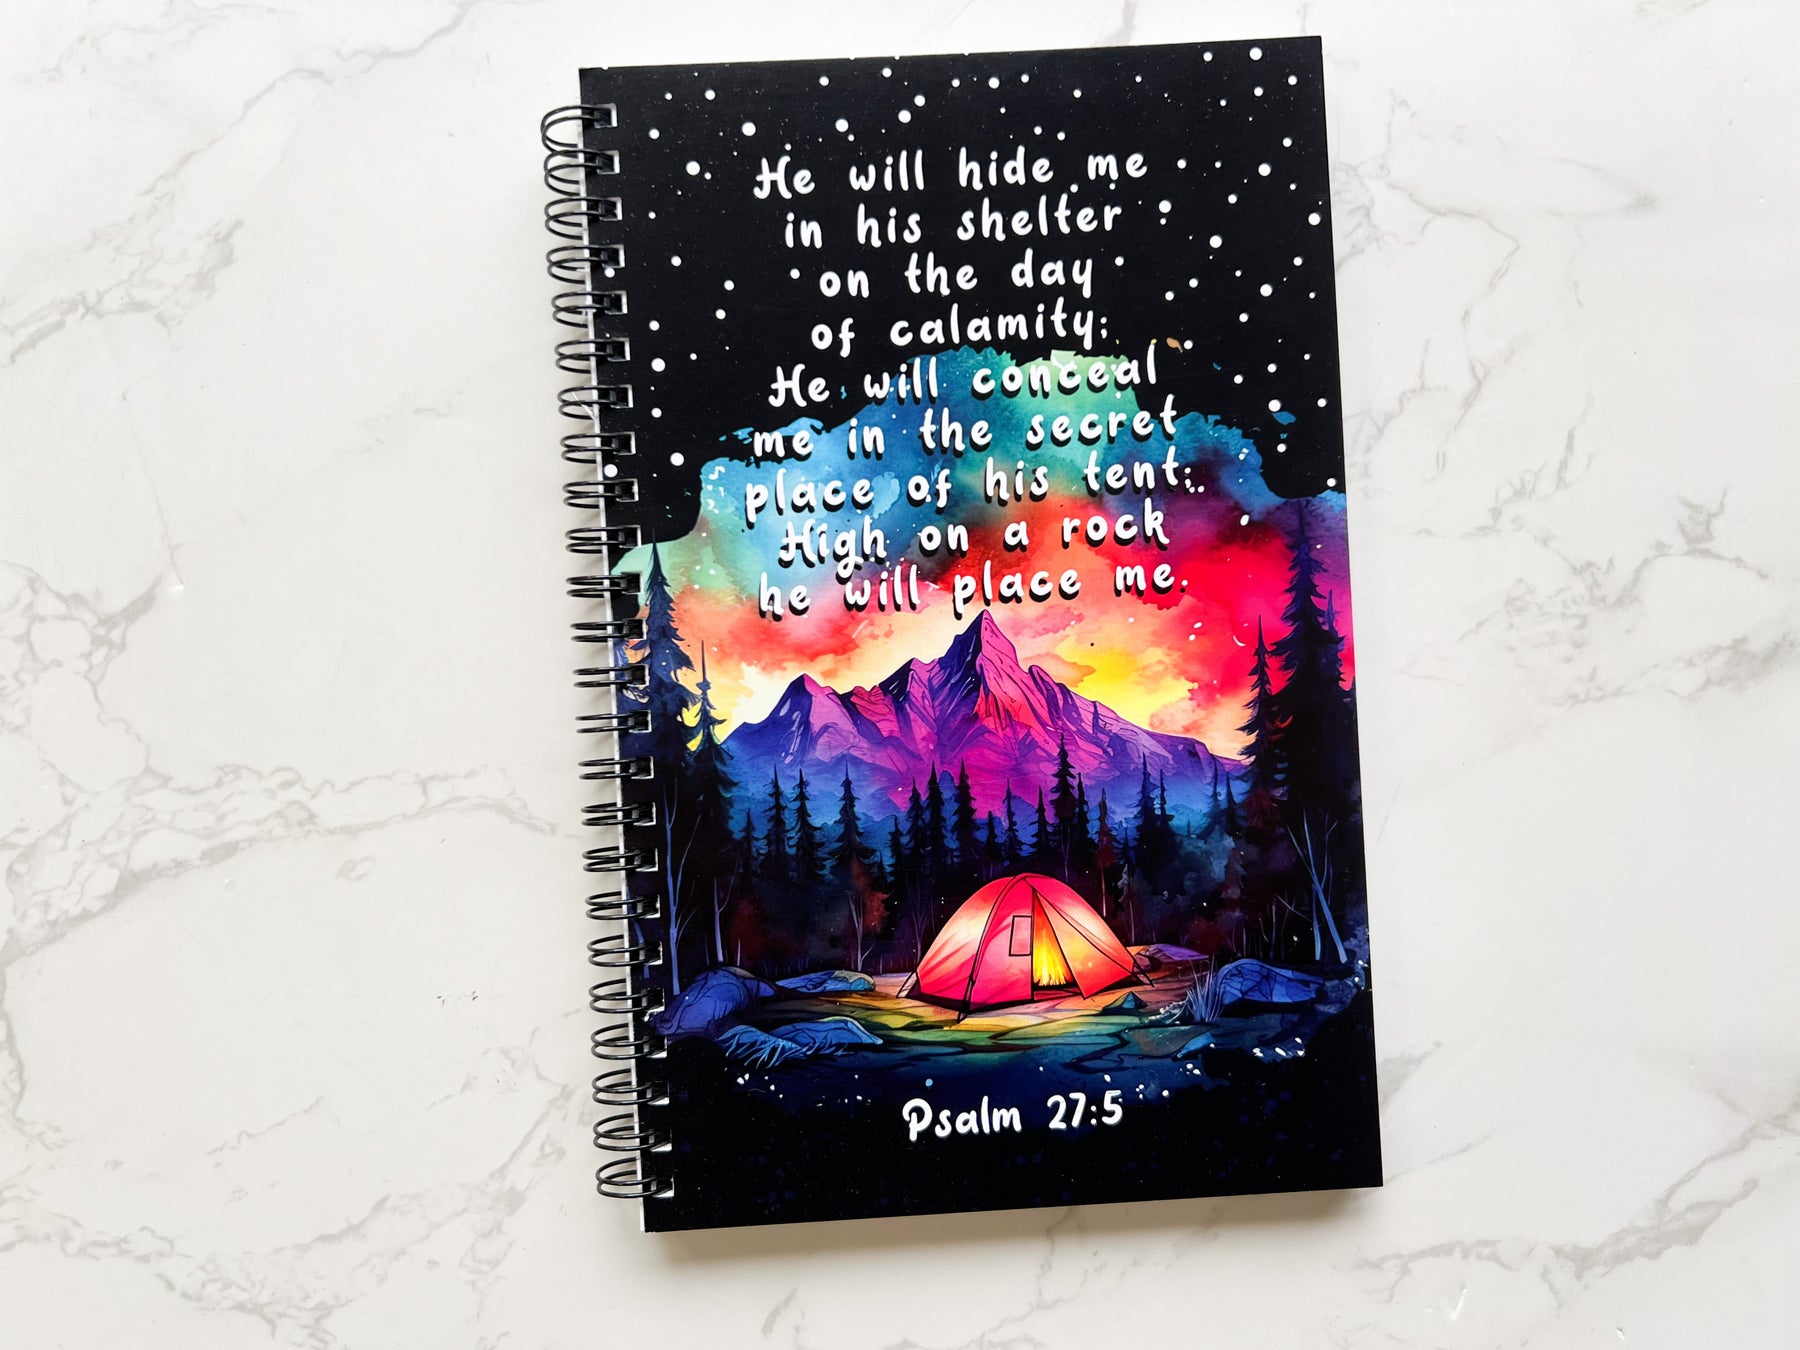 He will hide me
in his shelter
on the day
of calamity;
He will conceal
me in the secret
place of his tent;
High on a rock
he will place me.
Psalm 27:5